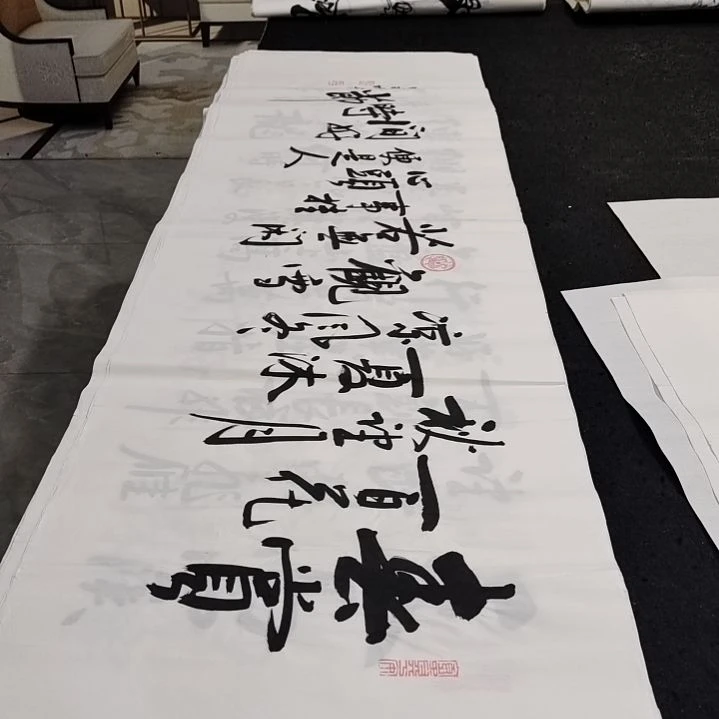 春賞
百花
秋望月
夏沐
凉风冬
觀雪
若無闲
事掛
心頭
便是人
间好
時節